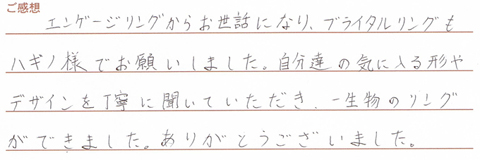 ご感想
エンゲージリングからお世話になり、ブライタルリングも
ハギノ様でお願いしました。自分達の気に入る形や
デザインを丁寧に聞いていただき、一生物のリング
ができました。ありがとうございました。